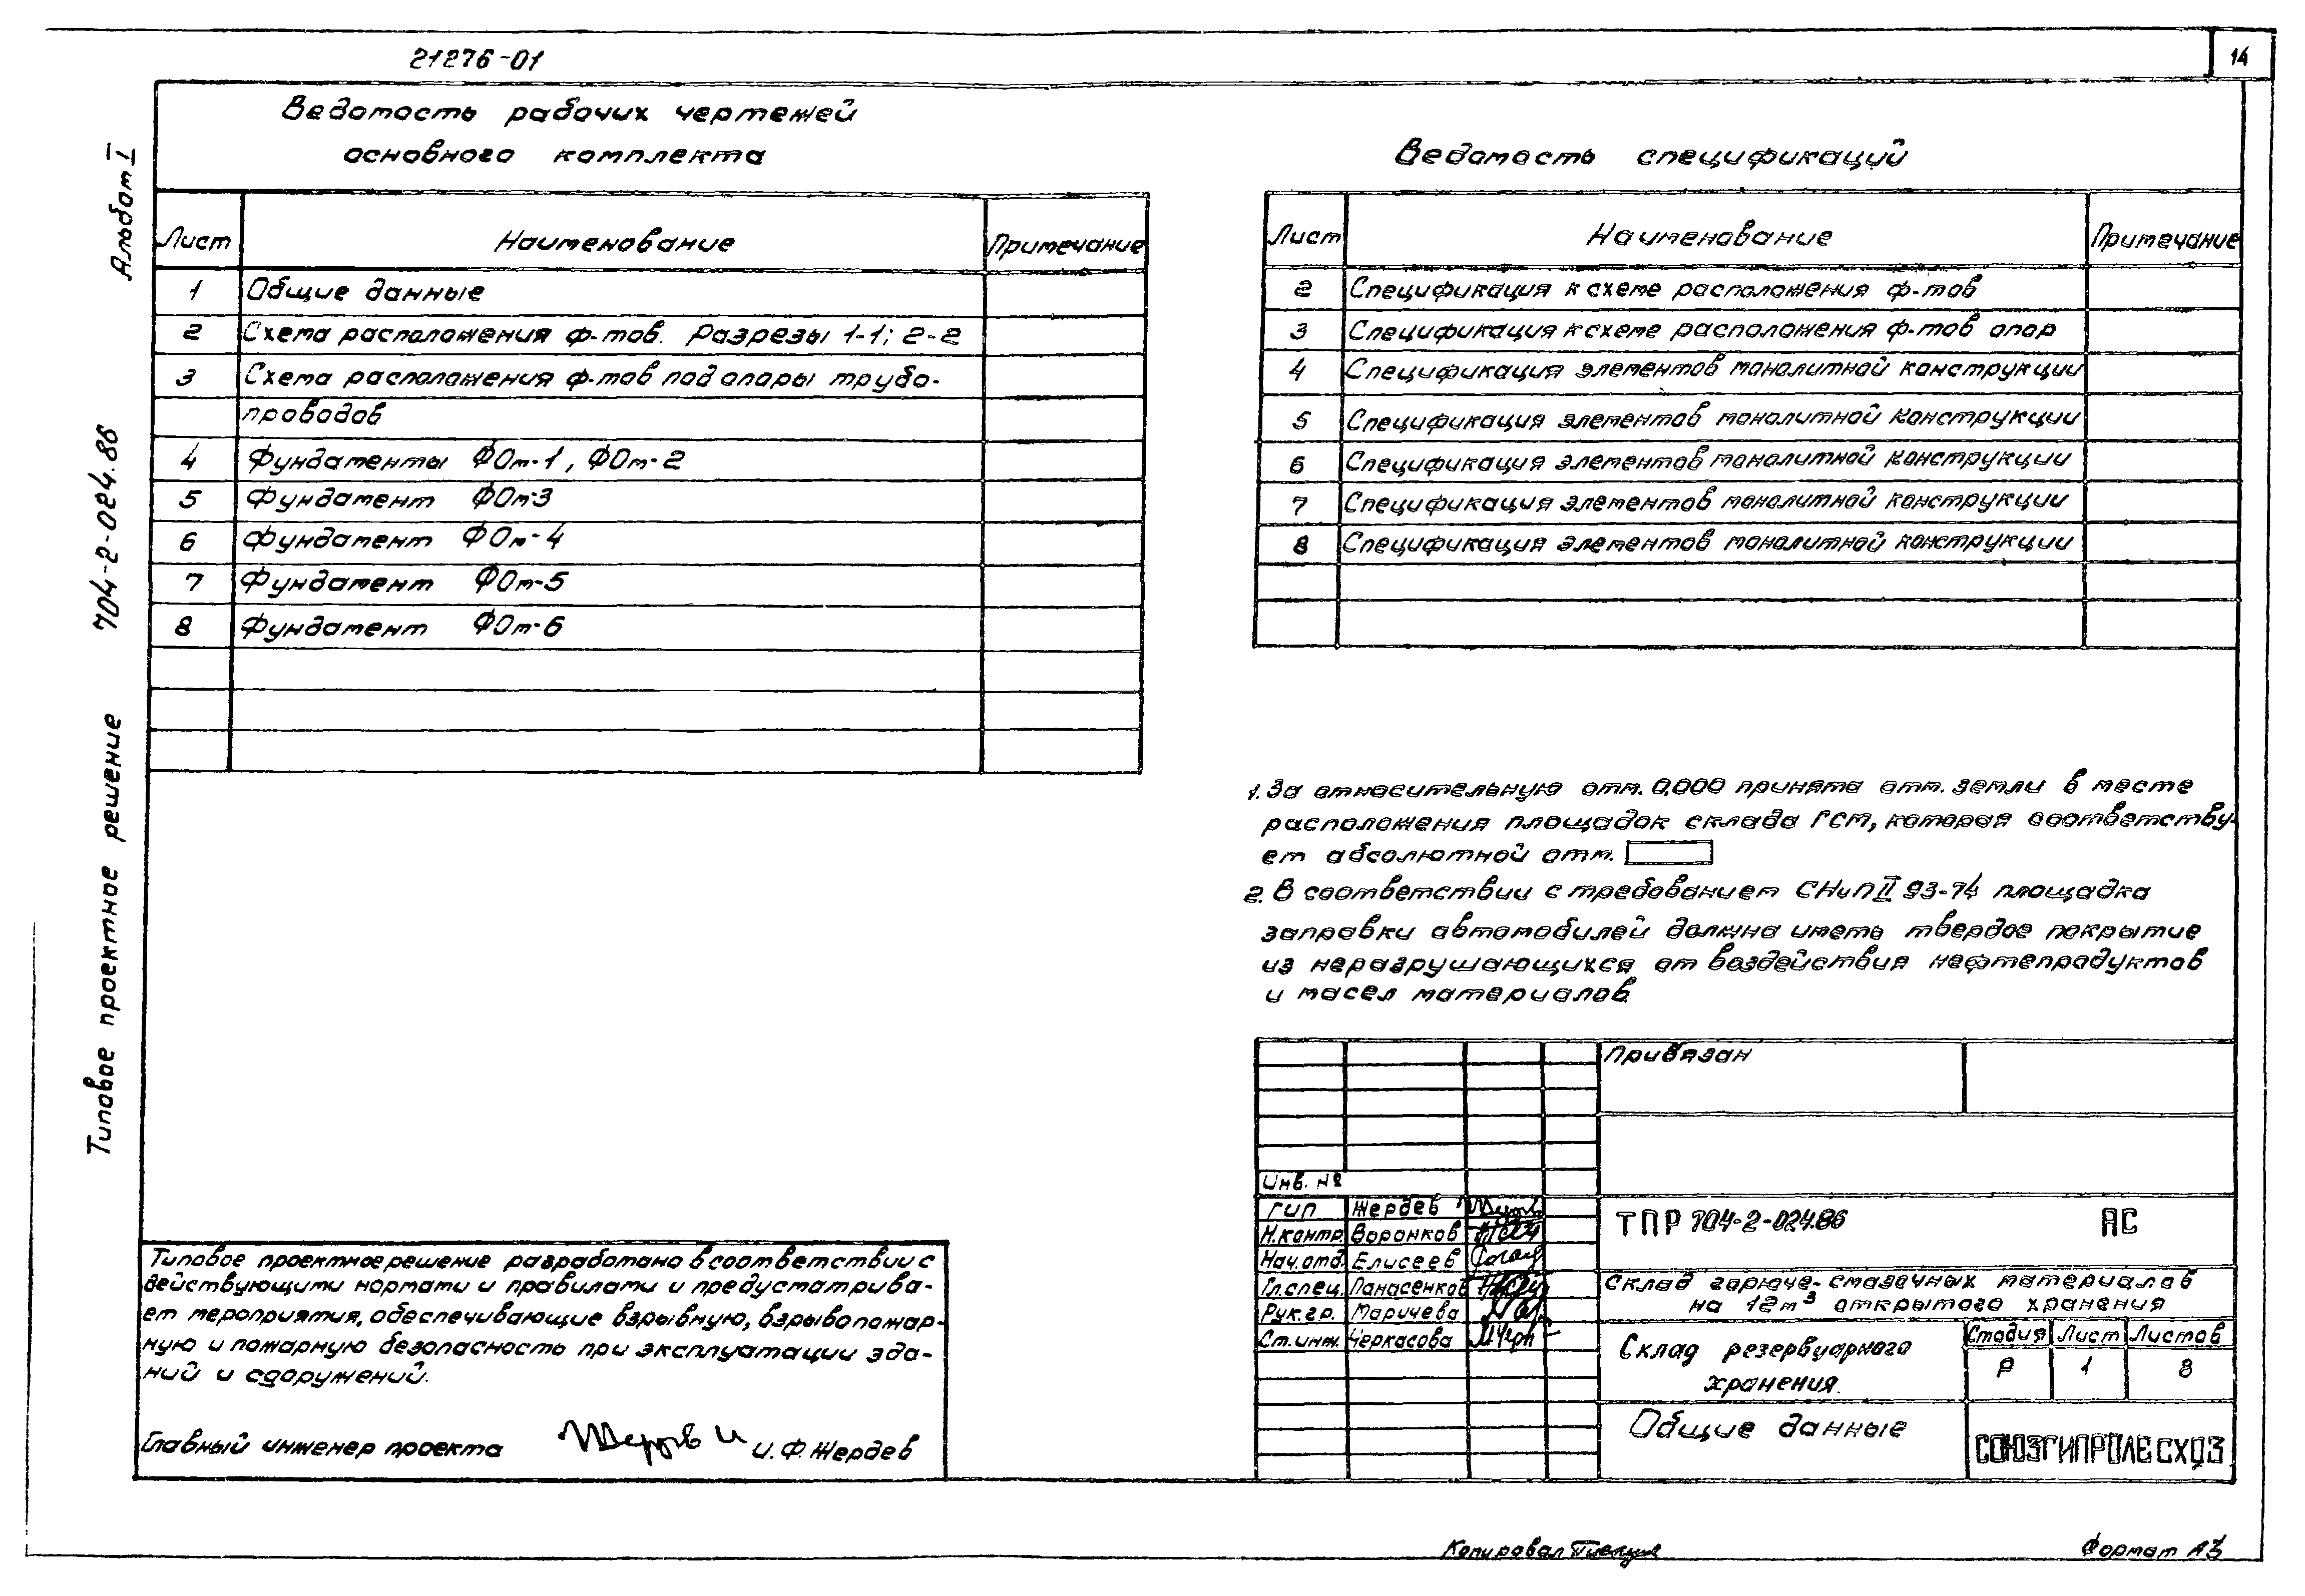 21276-01
14
Альбом I
704-2-024.86
Типовое проектное решение
Ведомость рабочих чертежей
основного комплекта
Лист Наименование Примечание
1 Общие данные
2 Схема расположения ф-тов. Разрезы 1-1; 2-2
3 Схема расположения ф-тов под опоры трубо-
проводов
4 Фундаменты ФОм-1, ФОм-2
5 Фундамент ФОм-3
6 Фундамент ФОм-4
7 Фундамент ФОм-5
8 Фундамент ФОм-6
Ведомость спецификаций
Лист Наименование Примечание
2 Спецификация к схеме расположения ф-тов
3 Спецификация к схеме расположения ф-тов опор
4 Спецификация элементов монолитной конструкции
5 Спецификация элементов монолитной конструкции
6 Спецификация элементов монолитной конструкции
7 Спецификация элементов монолитной конструкции
8 Спецификация элементов монолитной конструкции
1. За относительную отм. 0,000 принята отм. земли в месте
расположения площадок склада ГСМ, которая соответству-
ет абсолютной отм.
2. В соответствии с требованием СНиП II 93-74 площадка
заправки автомобилей должна иметь твердое покрытие
из неразрушающихся от воздействия нефтепродуктов
и масел материалов.
Типовое проектное решение разработано в соответствии с
действующими нормами и правилами и предусматрива-
ет мероприятия, обеспечивающие взрывную, взрывопожар-
ную и пожарную безопасность при эксплуатации зда-
ний и сооружений.
Главный инженер проекта И.Ф. Жердев
Привязан
Инв. №
ГИП Жердев
Н.контр. Воронков
Нач.отд. Елисеев
Гл.спец. Панасенков
Рук.гр. Маричева
Ст.инж. Черкасова
ТПР 704-2-024.86 АС
Склад горюче-смазочных материалов
на 12м³ открытого хранения
Склад резервуарного
хранения.
Стадия Лист Листов
Р 1 8
Общие данные
СОЮЗГИПРОЛЕСХОЗ
Копировал
Формат А3